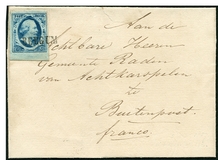 Aan de
Achtbare Heeren
Gemeente Raden
van Achtkarspelen
te
Buitenpost
franco.